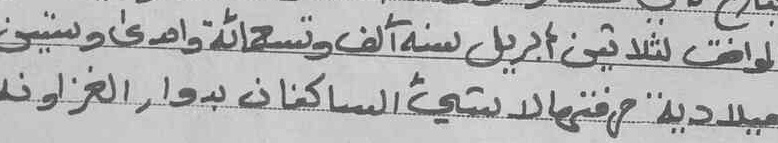 لوافق لثلاثين ابريل سنة آلف وتسعمائة واحدى وستين
ميلادية حرفتهما لا شيئ الساكنان بدوار الغزاونة